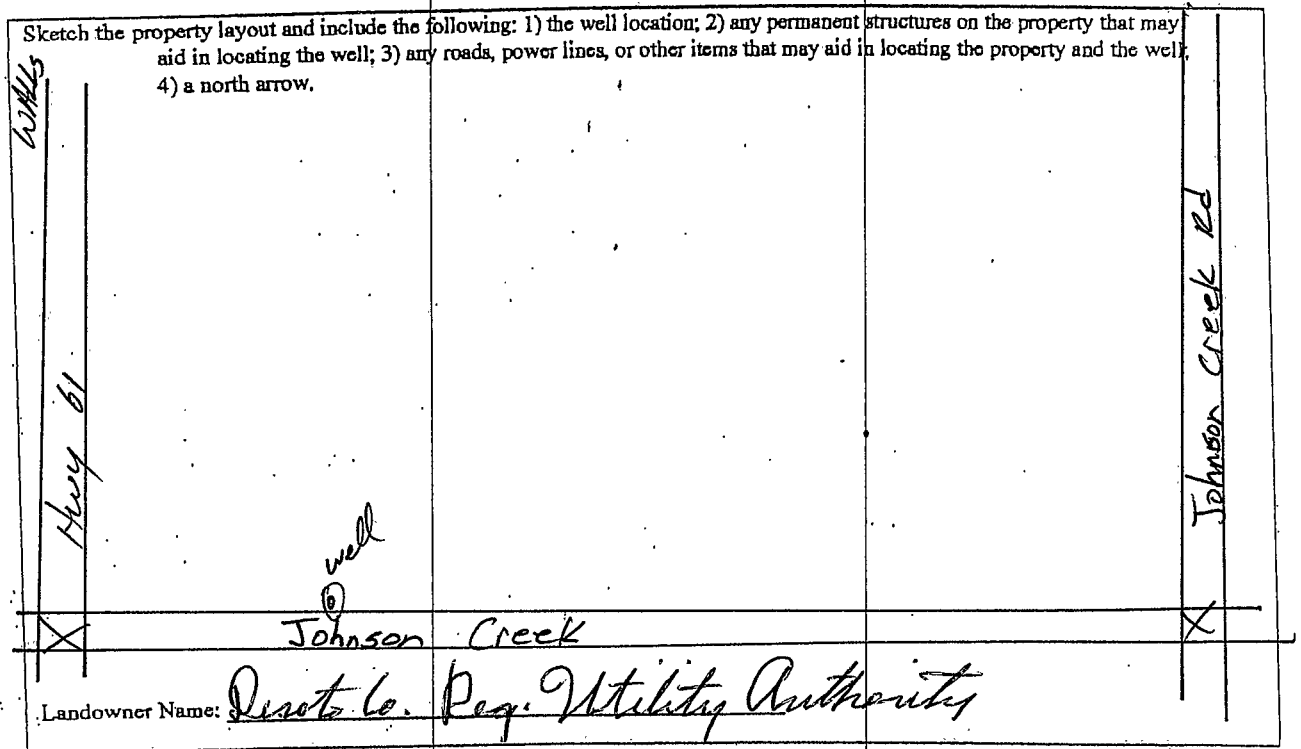 Sketch the property layout and include the following: 1) the well location; 2) any permanent structures on the property that may
aid in locating the well; 3) any roads, power lines, or other items that may aid in locating the property and the well;
4) a north arrow.
Walls
Hwy 61
Johnson Creek Rd
well
Johnson Creek
Landowner Name: Desoto Co. Reg. Utility Authority